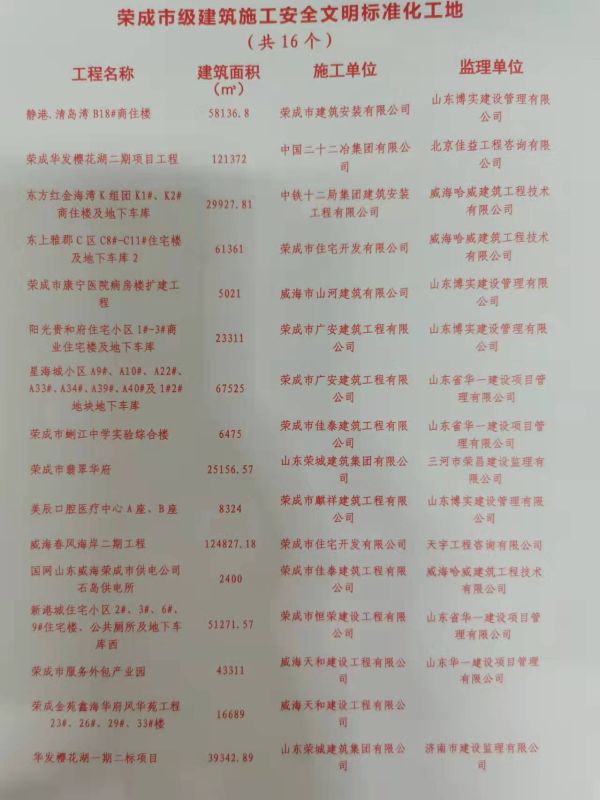 荣成市级建筑施工安全文明标准化工地
（共16个）
工程名称 建筑面积 施工单位 监理单位
（㎡）
静港.清岛湾B18#商住楼 58136.8 荣成市建筑安装有限公司 山东博实建设管理有限
公司
荣成华发樱花湖二期项目工程 121372 中国二十二冶集团有限公 北京佳益工程咨询有限
司 公司
东方红金海湾K组团K1#、K2# 29927.81 中铁十二局集团建筑安装 威海哈威建筑工程技术
商住楼及地下车库 工程有限公司 有限公司
东上雅郡C区C8#-C11#住宅楼 61361 荣成市住宅开发有限公司 威海哈威建筑工程技术
及地下车库2 有限公司
荣成市康宁医院病房楼扩建工 5021 威海市山河建筑有限公司 山东博实建设管理有限
程 公司
阳光贵和府住宅小区1#-3#商 23311 荣成市广安建筑工程有限 山东博实建设管理有限
业住宅楼及地下车库 公司 公司
星海城小区A9#、A10#、A22#、 67525 荣成市广安建筑工程有限 山东省华一建设项目管
A33#、A34#、A39#、A40#及1#2# 公司 理有限公司
地块地下车库
荣成市蜊江中学实验综合楼 6475 荣成市佳泰建筑工程有限 山东省华一建设项目管
公司 理有限公司
荣成市翡翠华府 25156.57 山东荣城建筑集团有限公 三河市荣昌建设监理有
司 限公司
美辰口腔医疗中心A座、B座 8324 荣成市麒祥建筑工程有限 山东博实建设管理有限
公司 公司
威海春风海岸二期工程 124827.18 荣成市住宅开发有限公司 天宇工程咨询有限公司
国网山东威海荣成市供电公司 2400 荣成市佳泰建筑工程有限 威海哈威建筑工程技术
石岛供电所 公司 有限公司
新港城住宅小区2#、3#、6#、 51271.57 荣成市恒荣建设工程有限 山东省华一建设项目管
9#住宅楼、公共厕所及地下车 公司 理有限公司
库西
荣成市服务外包产业园 43311 威海天和建设工程有限公 山东华一建设项目管理
司 有限公司
荣成金苑鑫海华府风华苑工程 16689 威海天和建设工程有限公
23#、26#、29#、33#楼 司
华发樱花湖一期二标项目 39342.89 山东荣城建筑集团有限公 济南市建设监理有限公
司 司